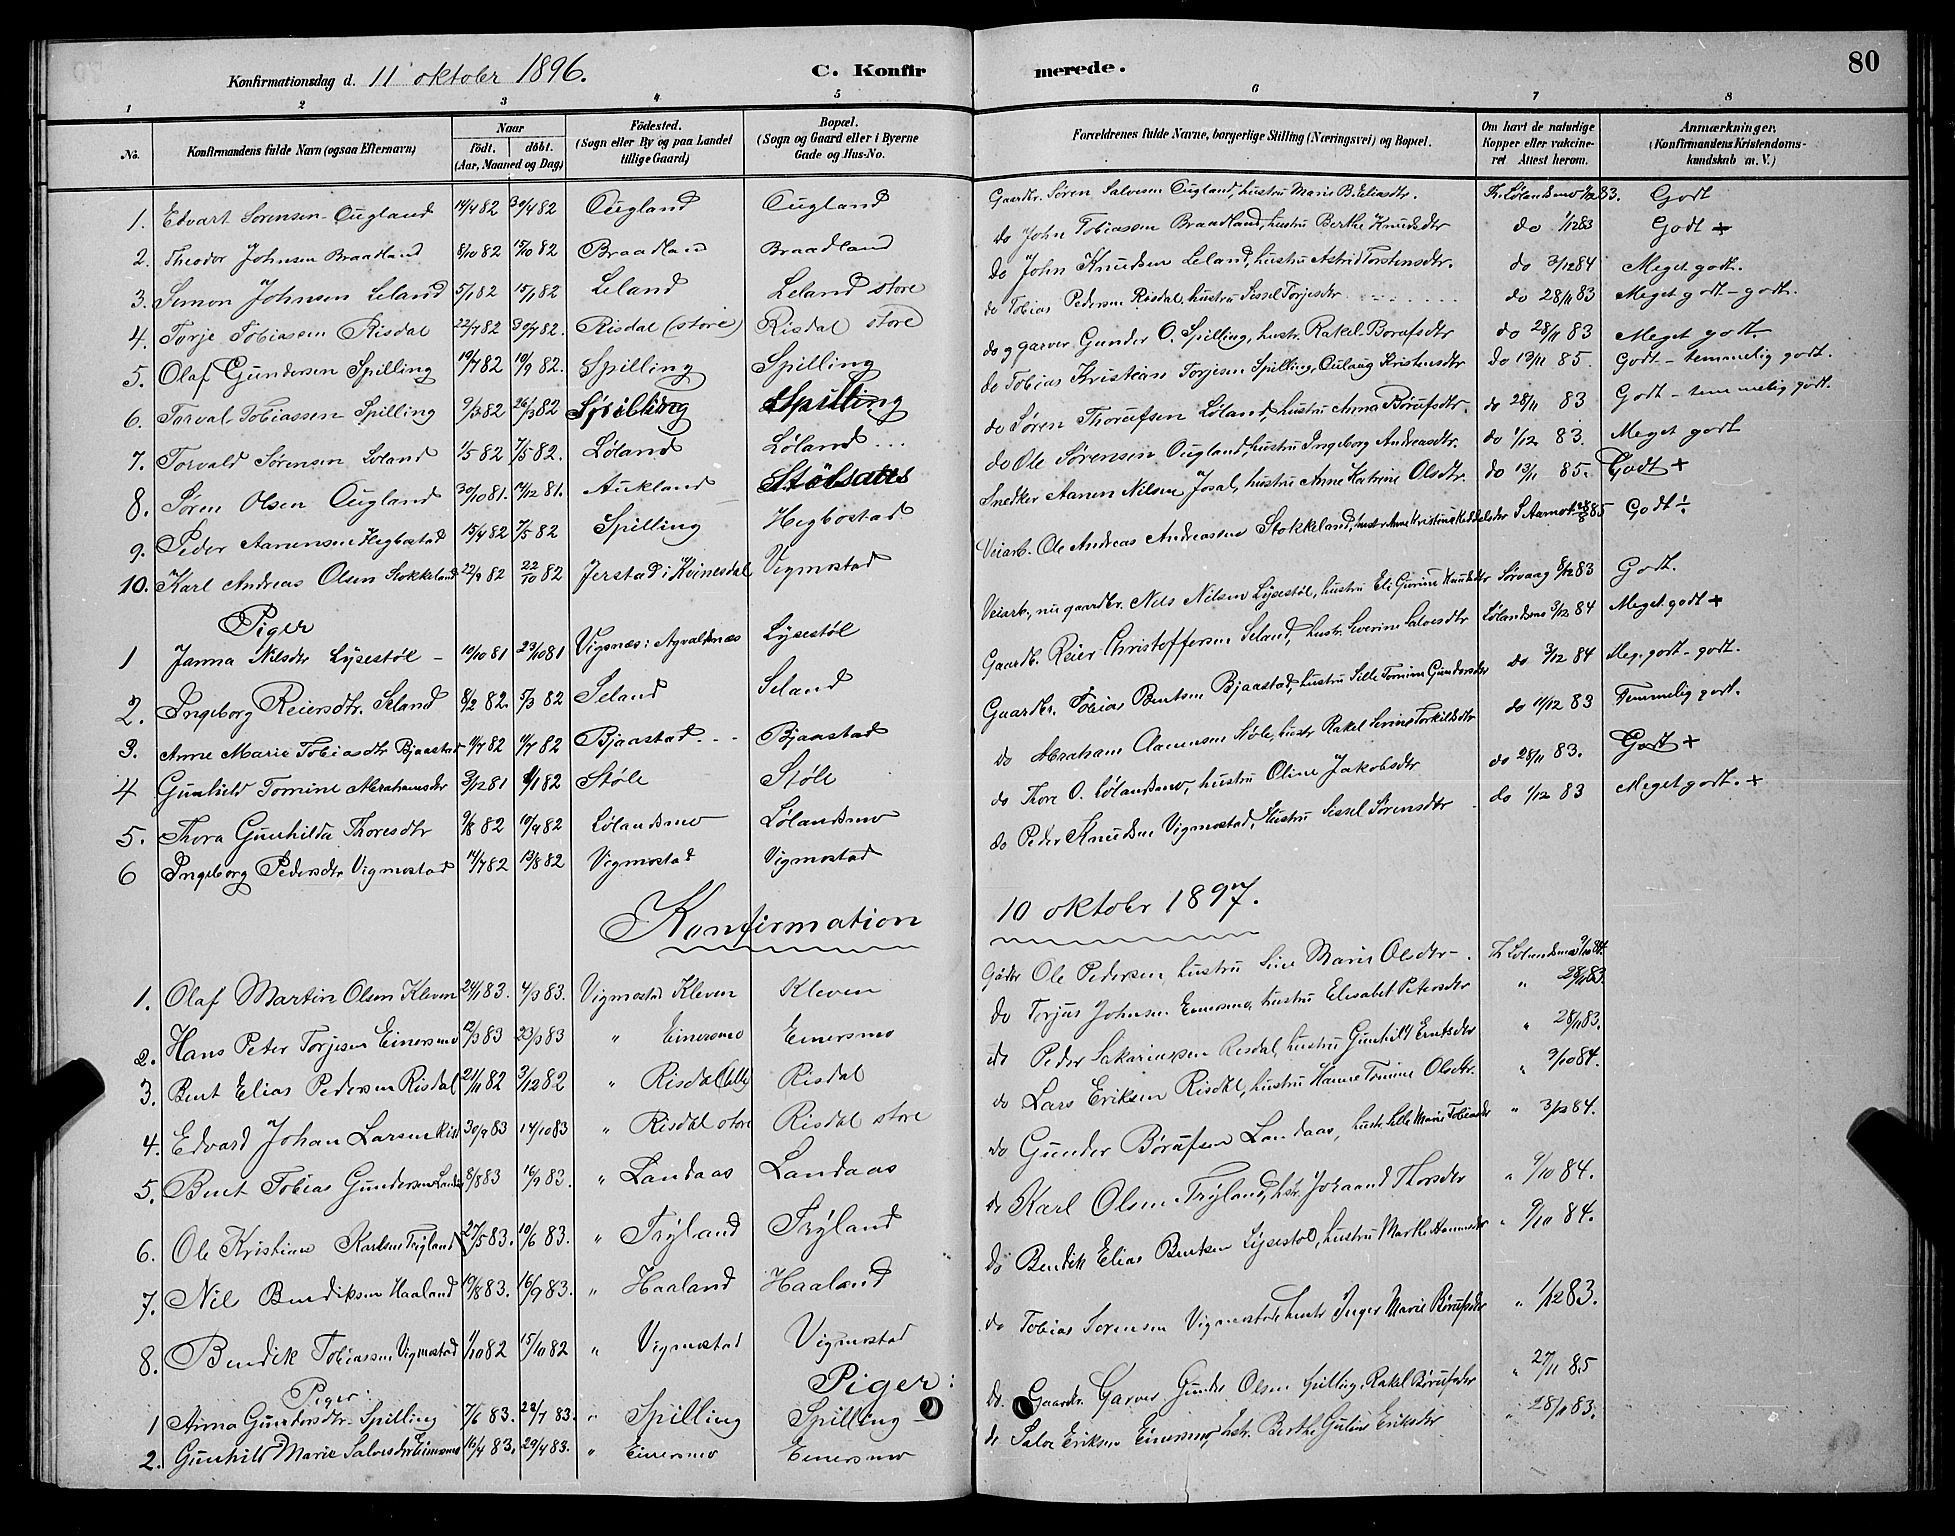 Konfirmationsdag d. 11 oktober 1896. C. Konfirmerede. 80
1 2 3 4 5 6 7 8
No. Konfirmandens fulde Navn (ogsaa Efternavn) Naar født. døbt. (Aar, Maaned og Dag) Fødested. (Sogn eller By og paa Landet tillige Gaard) Bopæl. (Sogn og Gaard eller i Byerne Gade og Hus-No. Forældrenes fulde Navne, borgerlige Stilling (Næringsvei) og Bopæl. Om havt de naturlige Kopper eller vakcineret Attest herom. Anmærkninger. (Konfirmandens Kristendomskundskab m. V.)
1. Edvart Sørensen Ougland 14/4 82 30/4 82 Ougland Ougland Gaardbr. Søren Salvesen Ougland, hustru Maria B. Eliasdtr. Th. Lølandsmo 1/12 83. Godt
2. Theodor Johnsen Braadland 8/10 82 15/10 82 Braadland Braadland do John Tobiassen Braadland, hustru Berthe Knudsdtr do 1/12 83 Godt +
3. Simon Johnsen Leland 5/1 82 15/1 82 Leland Leland store do John Knudsen Leland, hustru Astrid Torstensdtr. do 3/12 84 Meget godt.
4. Torje Tobiassen Risdal 22/7 82 30/7 82. Risdal (store) Risdal store do Tobias Pedersen Risdal, hustru Sissel Torjesdtr do 28/11 83 Meget godt - godt.
5. Olaf Gundersen Spilling 19/7 82 10/9 82. Spilling Spilling do og garver Gunder O. Spilling, hustr. Rakel Børufsdtr do 28/11 83 Meget godt
6. Torval Tobiassen Spilling 9/3 82 26/3 82 Spilling Spilling do Tobias Kristian Torjesen Spilling, Oulaug Kristensdtr do 13/11 85. Godt - temmelig godt.
7. Torvald Sørensen Løland 1/5 82 7/5 82. Løland Løland ... do Søren Thorufsen Løland, hustru Anna Børufsdtr. do 28/11 83 Godt - temmelig godt.
8. Søren Olsen Ougland 30/10 81. 11/12 81. Aukland Stølsates do Ole Sørensen Ougland, hustru Ingeborg Andreasdtr. do 1/12 83. Meget godt
9. Peder Aanensen Hegbostad 15/4 82 7/5 82 Spilling Hegbostad Snedker Aanen Nilsen Josal, hustru Anne Katrine Olsdtr. do 13/11 85. Godt +
10. Karl Andreas Olsen Stokkeland 22/9 82 22/10 82 Jerstad i Kvinesdal Vigmostad Veiarb. Ole Andreas Andreassen Stokkeland, hustr. Anne Kristine Keddelsdtr S. Aamot 28/8 85 Godt ÷
Piger
1 Janna Nilsdtr Lysestøl - 10/10 81 23/10 81 Vigsnæs i Agvaldsnæs Lysestøl Veiarb., nu gaardbr. Nils Nilsen Lysestøl, hustru Eli Gurine Knudsdtr Sørvaag 8/12 83 Godt.
2. Ingeborg Reiersdtr. Seland 8/2 82. 5/3 82 Seland Seland Gaardb. Reier Christoffersen Seland, hustr. Severine Salvesdtr Lølandsmo 3/12 84 Meget godt +
3. Anne Marie Tobiasdtr Bjaastad 11/7 82 11/7 82 Bjaastad Bjaastad Gaardbr. Tobias Bentsen Bjaastad, hustru Sille Tomine Gundersdtr do 3/12 84 Meg. godt - godt.
4 Gunhild Tomine Abrahamsdtr 3/12 81 1/1 82 Støle Støle do Abraham Aanensen Støle, hustr. Rakel Serine Torkildsdtr do 11/12 83 Temmelig godt.
5. Thora Gunhilda Thoresdtr 9/8 82 10/9 82 Lølandsmo Lølandsmo do Thore O. Lølandsmo, hustru Oline Jakobsdtr do 28/11 83. Godt +
6 Ingeborg Pedersdtr Vigmostad 14/7 82 13/8 82 Vigmostad Vigmostad do Peder Knudsen Vigmostad, Hustru Sissel Sørensdtr do 1/12 83 Meget godt. +
Konfirmation 10 oktober 1897.
1. Olaf Martin Olsen Kleven 24/1 83. 4/3 83. Vigmostad Kleven Kleven Gdbr Ole Pedersen, hustru Sine Marie Olsdtr -. Th Lølandsmo 9/10 84.
2. Hans Peter Torjesen Einersmo 12/3 83 23/3 83 " Einersmo Einersmo do Terjus Johnsen Einersmo, hustru Elisabet Petersdtr " 28/11 83.
3. Bent Elias Pedersen Risdal 21/11 82 3/12 82 " Risdal Risdal do Peder Sakariassen Risdal, hustru Gunhild Erntsdtr " 28/11 83.
4. Edvard Johan Larsen 30/9 83 14/10 83 " Risdal store Risdal store do Lars Eriksen Risdal, hustru Hanne Tomine Olsdtr. " 9/10 84.
5. Bent Tobias Gundersen Landaas 8/8 83 16/9 83. " Landaas Landaas do Gunder Børufsen Landaas, hustr Sille Marie Tobiasdtr " 3/12 84.
6. Ole Kristian Karlsen Tryland 27/5 83. 10/6 83. " Tryland Tryland do Karl Olsen Tryland, hstr. Johanne Thorsdtr " 9/10 84.
7. Nil Bendiksen Haaland 19/8 83. 16/9 83. " Haaland Haaland do Bendik Elias Bentsen Lysestøl, hustru Marthe " 9/10 84.
8. Bendik Tobiassen Vigmostad 1/10 82 15/10 82 " Vigmostad Vigmostad do Tobias Sørensen Vigmostad, hustr Inger Marie Børufsdtr " 1/12 83.
Piger: Piger:
1 Anna Gundersdtr. Spilling 7/6 83. 22/7 83. " Spilling Spilling do. Gaardbr. Garver Gunder Olsen Spilling, Rakel Børufsdtr " 27/11 85
2. Gunhild Marie Salvesdtr Einersmo 16/4 83. 29/4 83. " Einersmo Einersmo do Salve Eriksen Einersmo, hstr. Berthe Guline Eriksdtr " 28/11 83.